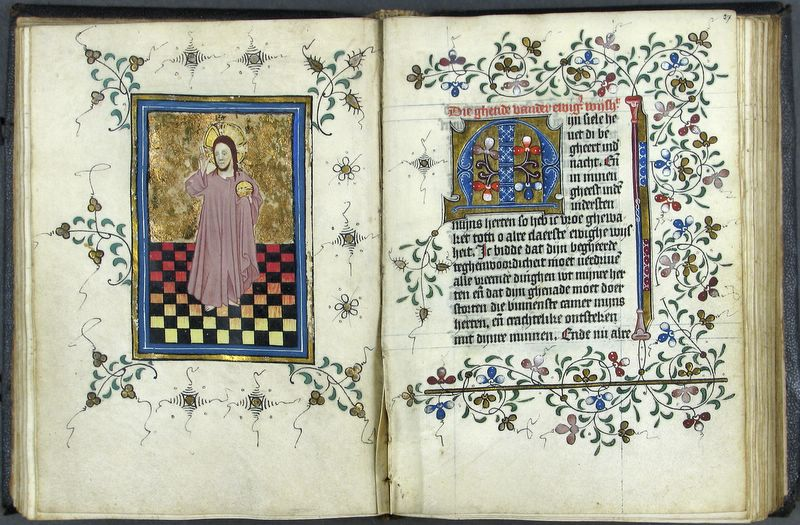 Die ghetide vander ewigʳ wijshʳ
Mijn siele he
uet di be
gheert ind'
nacht. En̄
in minen
gheest ind'
indersten
mijns herten so heb ic vroe ghewa
ket toth o alre claerste ewighe wijs
heit. Ic bidde dat dijn begheerde
teghenwoordicheit moet verdriue
alle vreemde dinghen wt mijnre her
ten en̄ dat dijn ghenade moet doer
storten die binnenste camer mijns
herten, en̄ crachtelike ontsteken
mit dijnre minnen. Ende mi alre